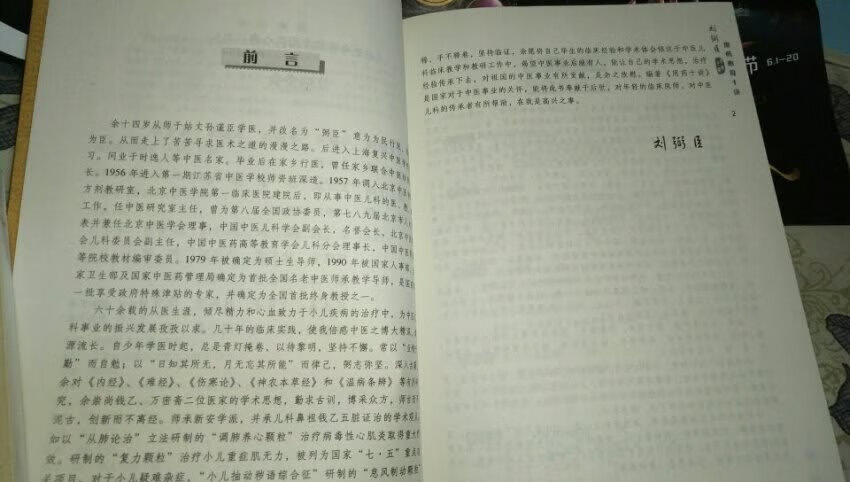 前 言
余十四岁从师于姑丈孙谨臣学医，并改名为“弼臣”意为为民行医，
为臣。从而走上了苦苦寻求医术之道的漫漫之路。后进入上海复兴中医
习。问业于时逸人等中医名家。毕业后在家乡行医，曾任家乡联合中医
长。1956年进入第一期江苏省中医学校师资班深造。1957年调入北京中医
方剂教研室，北京中医学院第一临床医院建院后，即从事中医儿科的医、
工作。任中医研究室主任，曾为第八届全国政协委员，第七八九届北京市人
表并兼任北京中医学会理事，中国中医儿科学会副会长，名誉会长、北京中
会儿科委员会副主任，中国中医药高等教育学会儿科分会理事长，中国中医
等院校教材编审委员。1979年被确定为硕士生导师，1990年被国家人事部、
家卫生部及国家中医药管理局确定为首批全国名老中医师承教学导师，是医
一批享受政府特殊津贴的专家，并确定为全国首批终身教授之一。
六十余载的从医生涯，倾尽精力和心血致力于小儿疾病的治疗中，为中
科事业的振兴发展孜孜以求。几十年的临床实践，使我倍感中医之博大精
源流长。自少年学医时起，总是青灯掩卷、以待黎明，坚持不懈。常以“业精于
勤”而自勉；以“日知其所无，月无忘其所能”而律己，弼志弥坚。深入
余对《内经》、《难经》、《伤寒论》、《神农本草经》和《温病条辨》等有
究，余崇尚钱乙、万密斋二位医家的学术思想，勤求古训，博采众方，师古
泥古，创新而不离经。师承新安学派，并承儿科鼻祖钱乙五脏证治的学术观
如以“从肺论治”立法研制的“调肺养心颗粒”治疗病毒性心肌炎取得重大
效。研制的“复力颗粒”治疗小儿重症肌无力，被列为国家“七·五”重点
关项目。对于小儿疑难杂症，“小儿抽动秽语综合征”研制的“息风制动颗粒”
移，手不释卷，坚持临证，余愿将自己毕生的临床经验和学术体会倾注于中医儿
科临床教学和教研工作中，渴望中医事业后继有人，能让自己的学术思想，治疗
经验传承下去，对祖国的中医事业有所贡献，是余之夙愿。编著《用药十讲》
是国家对于中医事业的关怀，能将此书奉献于后世，对年轻的临床医师、对中医
儿科的传承者有所帮助，在我是高兴之事。
刘弼臣
刘弼臣
用药十讲
2
节
6.1-20